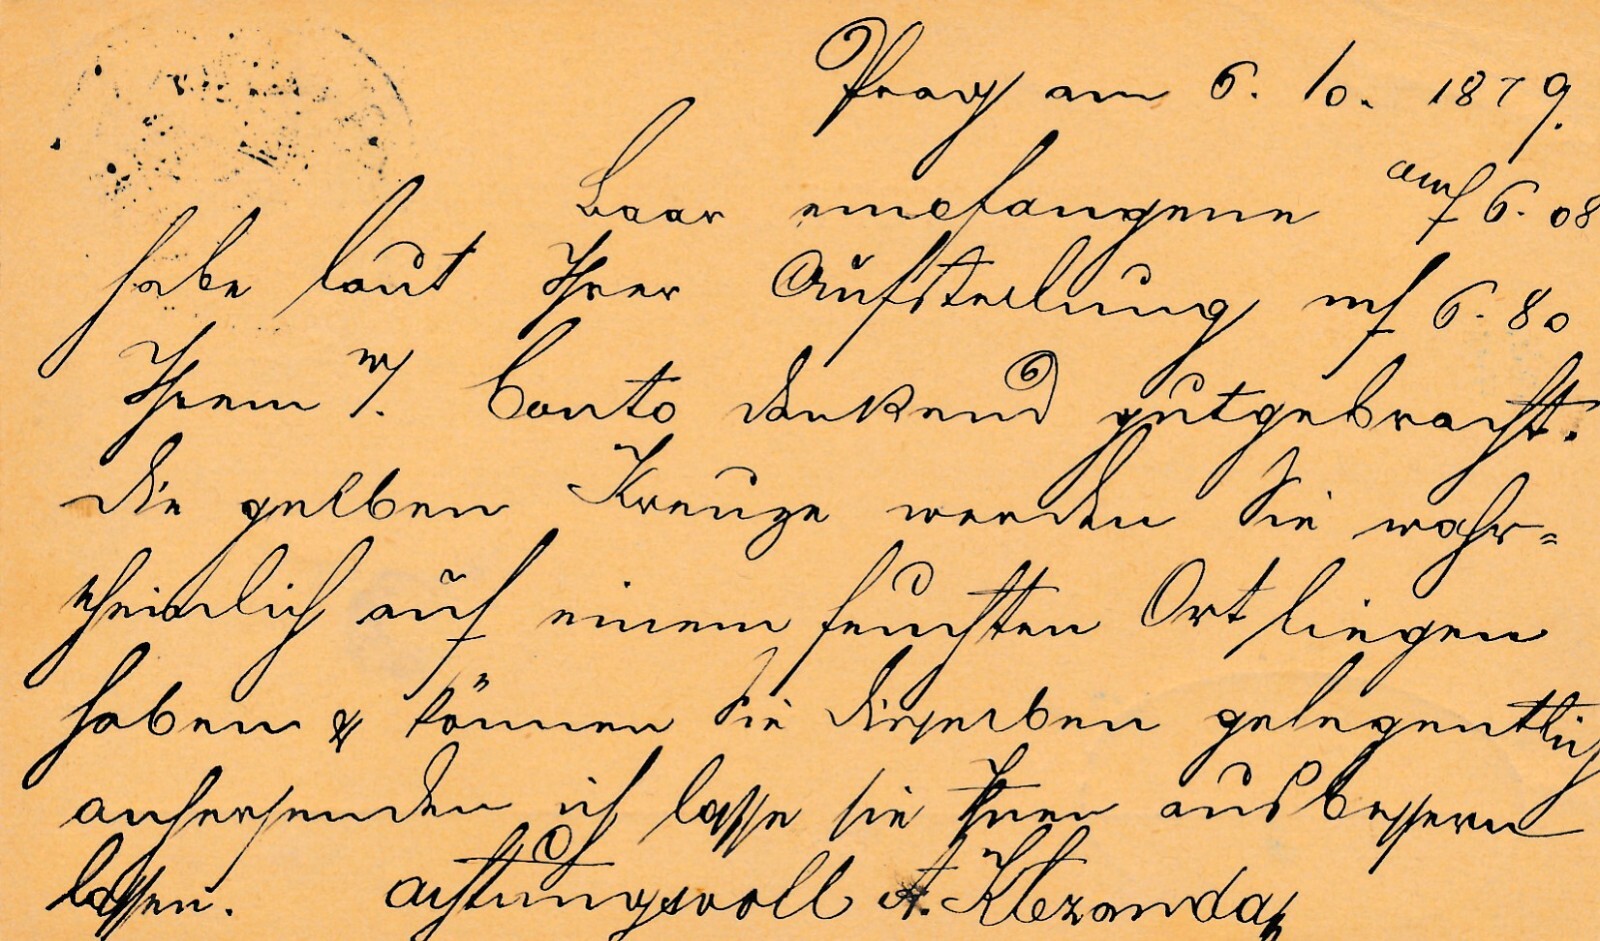 Prag am 6. 10. 1879.
Baar empfangene auf 6. 08
habe laut Ihrer Aufstellung mf 6. 80
Ihrem w. Conto dankend gutgebracht.
Die gelben Kreuze werden Sie wahr=
scheinlich auf einem feuchten Ort liegen
haben & können Sie dieselben gelegentlich
anhersenden ich lasse sie Ihnen ausbessern
lassen. Achtungsvoll A.